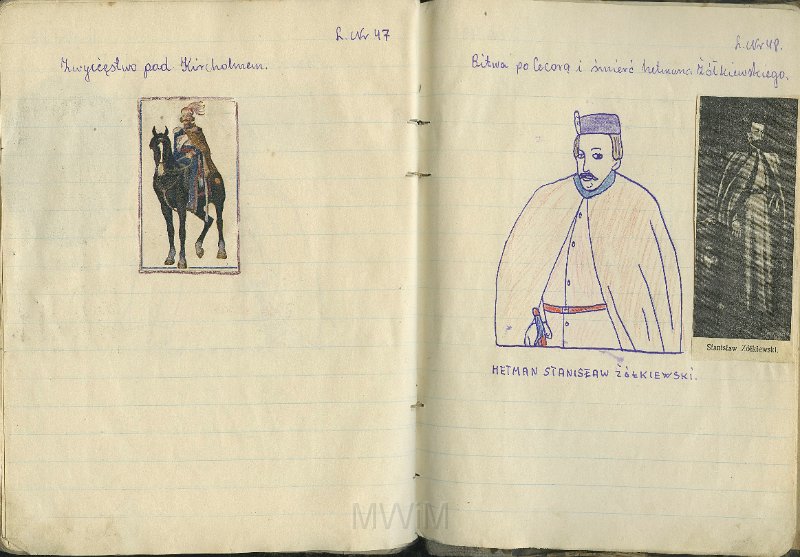 L. Nr 47
Zwycięstwo pod Kircholmem.
L. Nr 48.
Bitwa po Cecorą i śmierć hetmana Żółkiewskiego.
Stanisław Żółkiewski.
HETMAN STANISŁAW ŻÓŁKIEWSKI.
MWiM